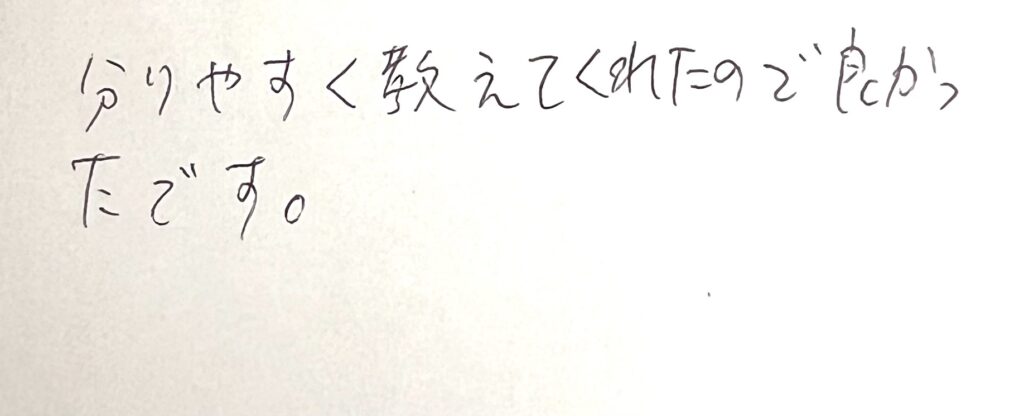 分りやすく教えてくれたので良かっ
たです。